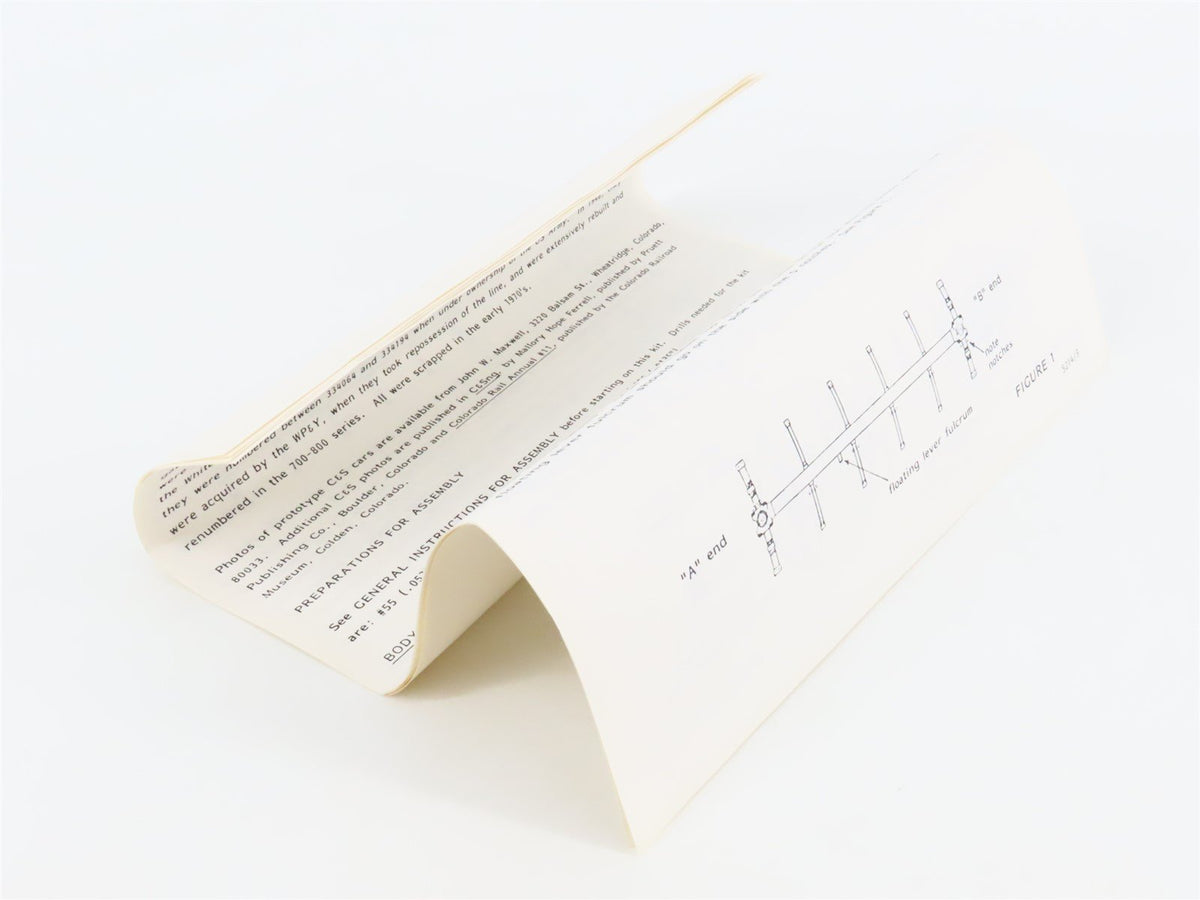 the White
they were numbered between 334064 and 334194 when under ownership of the US Army. In 1946, they
were acquired by the WP&Y, when they took repossession of the line, and were extensively rebuilt and
renumbered in the 700-800 series. All were scrapped in the early 1970's.
Photos of prototype C&S cars are available from John W. Maxwell, 3220 Balsam St., Wheatridge, Colorado,
80033. Additional C&S photos are published in C&Sng, by Mallory Hope Ferrell, published by Pruett
Publishing Co., Boulder, Colorado and Colorado Rail Annual #11, published by the Colorado Railroad
Museum, Golden, Colorado.
PREPARATIONS FOR ASSEMBLY
See GENERAL INSTRUCTIONS FOR ASSEMBLY before starting on this kit. Drills needed for the kit
are: #55 (.052
BODY
"B" end
note
notches
floating lever fulcrum
"A" end
FIGURE 1